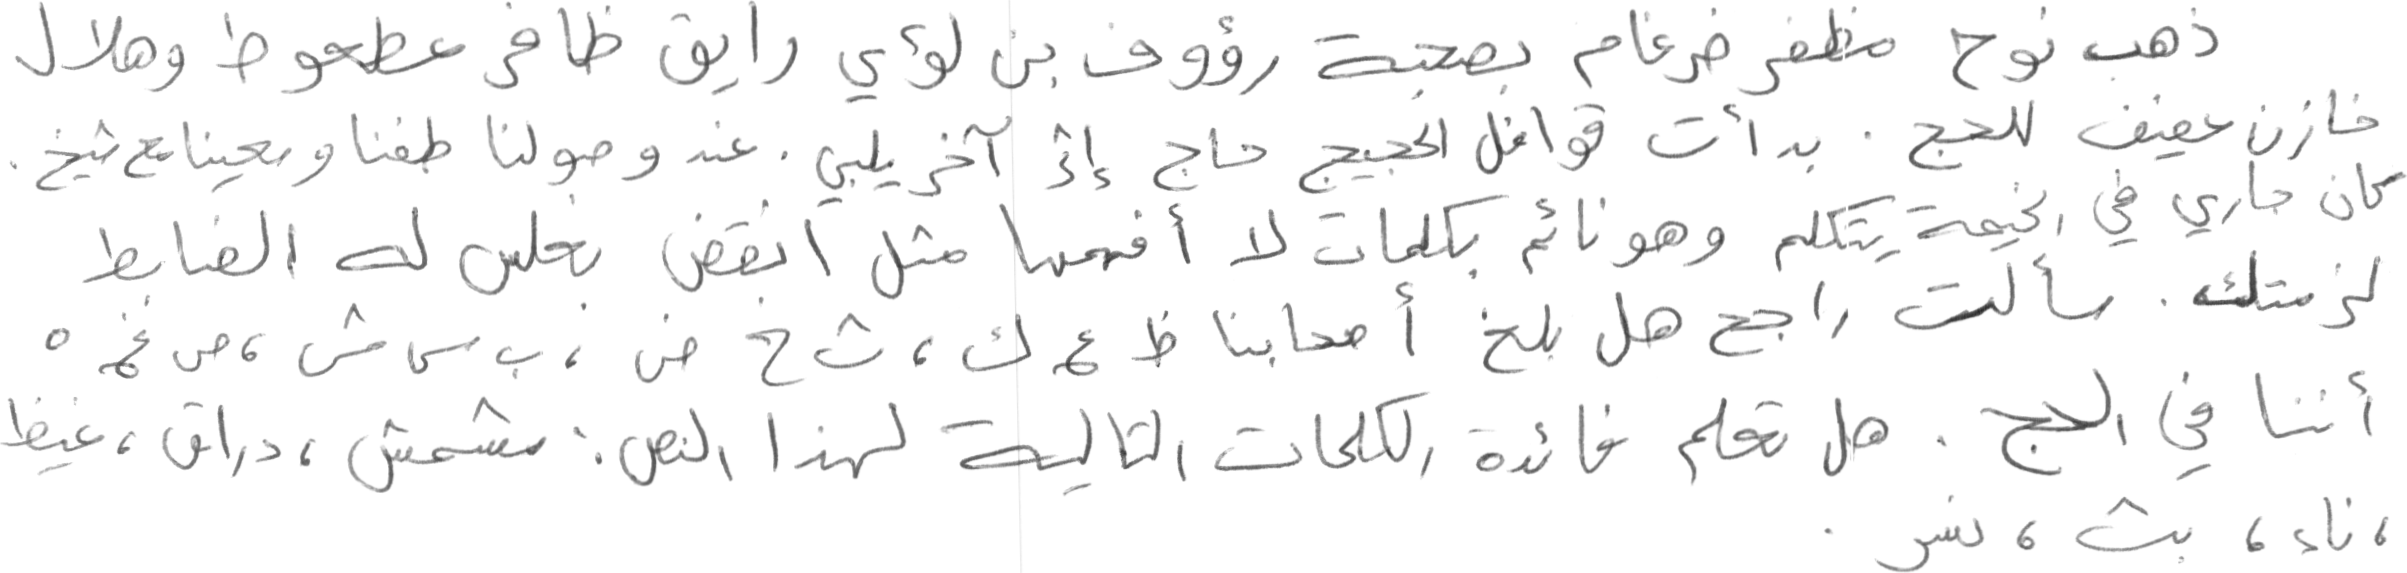 ذهب نوح مظفر ضرغام بصحبة رؤوف بن لؤي رايق ظافر عطعوط وهلال
خازن عفيف للحج . بدأت قوافل الحجيج حاج إثر آخر يلبي . عند وصولنا طفنا وسعينا مع شيخ .
كان جاري في الخيمة يتكلم وهو نائم بكلمات لا أفهمها مثل انقض نغلس له الضابط
لزمتك . سألت راجح هل بلغ أصحابنا ظ ع ك ، ث خ ض ، ب س ش ، ص غ ه
أننا في الحج . هل تعلم فائدة الكلمات التالية لهذا النص : مشمش ، دراق ، غيظ
، ناء ، بث ، نسر .